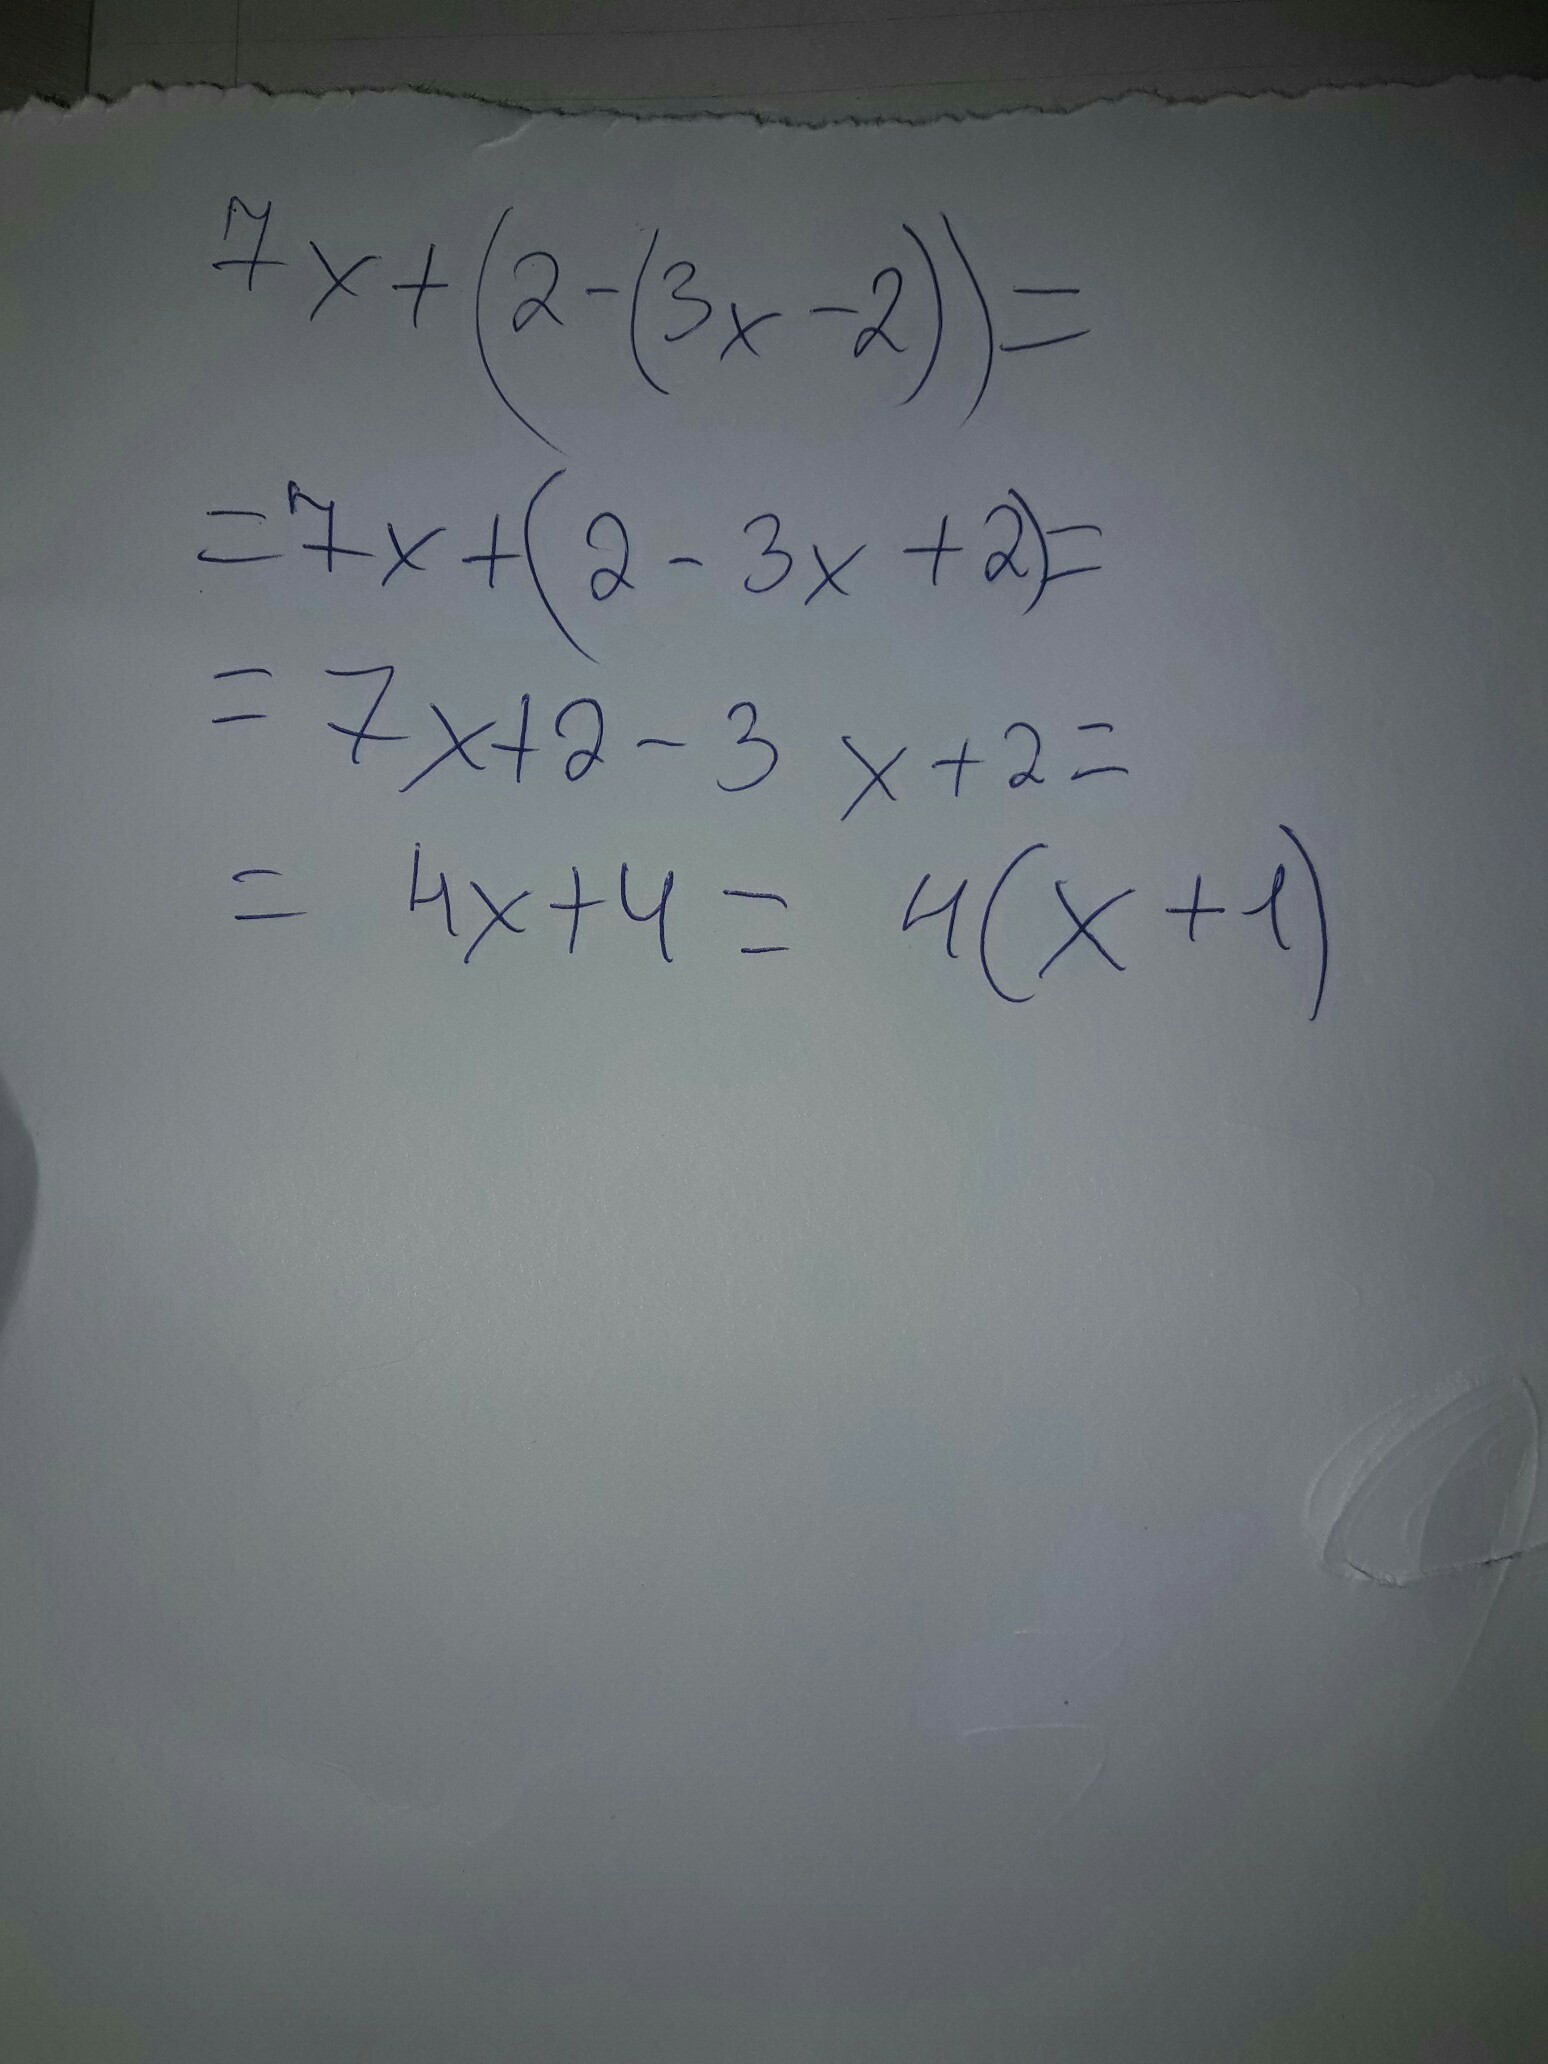 7x+(2-(3x-2))=
=7x+(2-3x+2)=
=7x+2-3x+2=
=4x+4=4(x+1)